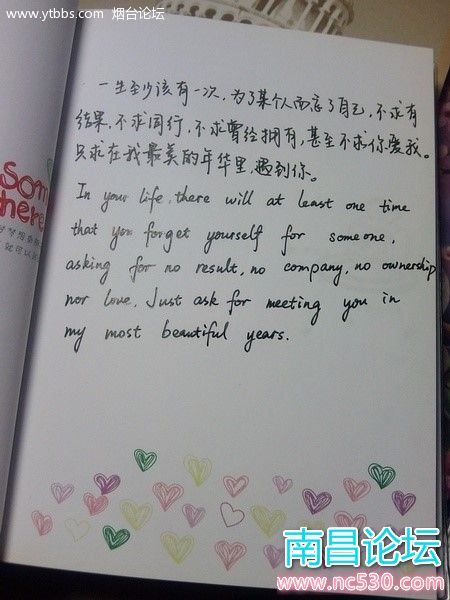 www.ytbbs.com 烟台论坛
一生至少该有一次，为了某个人而忘了自己，不求有
结果，不求同行，不求曾经拥有，甚至不求你爱我。
只求在我最美的年华里，遇到你。
som
here
In your life, there will at least one time
that you forget yourself for someone,
asking for no result, no company, no ownership
nor love. Just ask for meeting you in
my most beautiful years.
南昌论坛
www.nc530.com